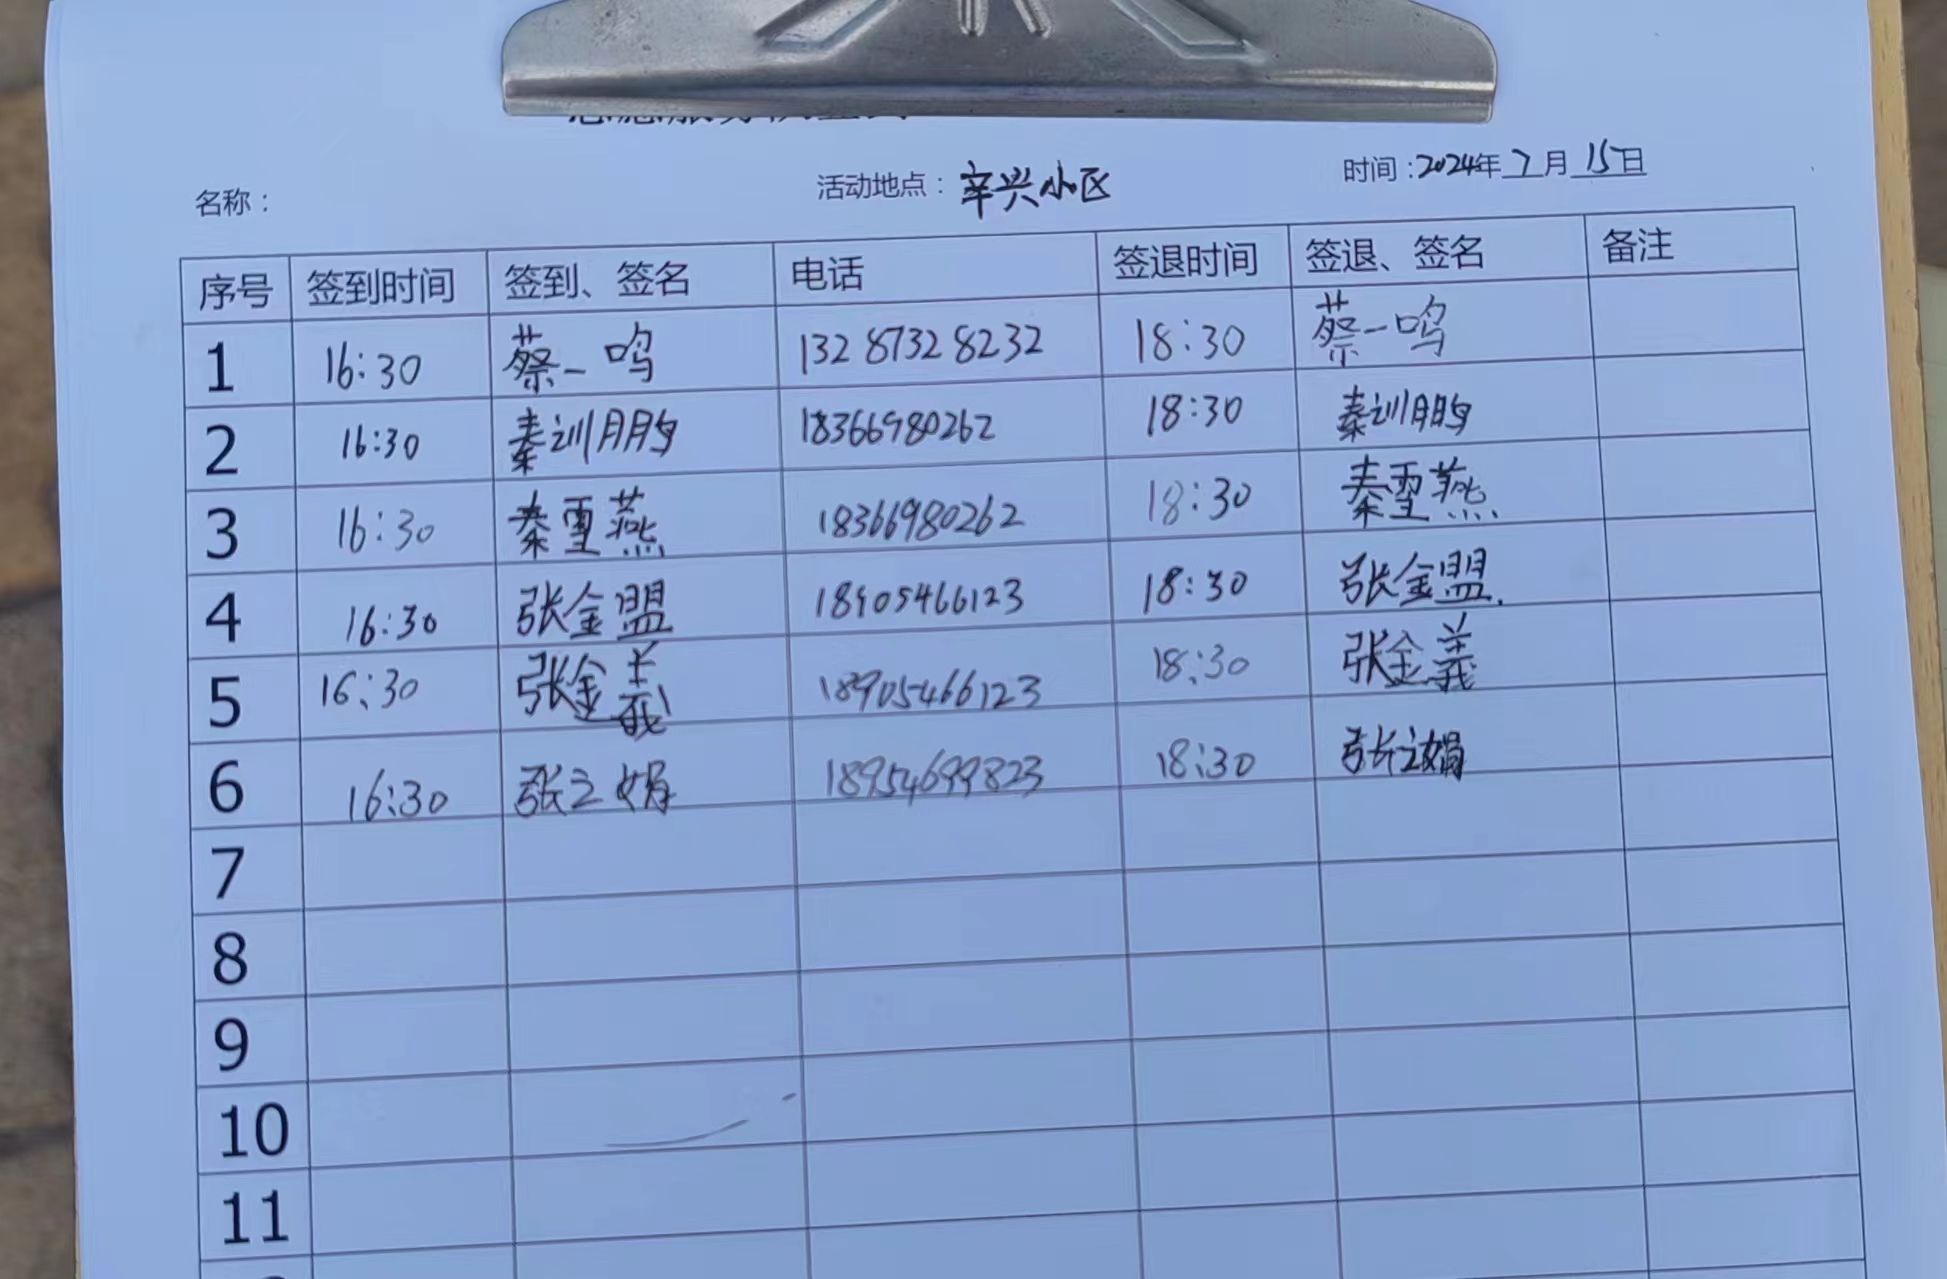 名称：
活动地点：辛兴小区
时间：2024年7月15日
序号 签到时间 签到、签名 电话 签退时间 签退、签名 备注
1 16:30 蔡一鸣 13287328232 18:30 蔡一鸣
2 16:30 秦训鹏 18366980262 18:30 秦训鹏
3 16:30 秦雪燕 18366980262 18:30 秦雪燕
4 16:30 张金盟 18905466123 18:30 张金盟
5 16:30 张金義 18905466123 18:30 张金義
6 16:30 张之娟 18954699823 18:30 张之娟
7
8
9
10
11